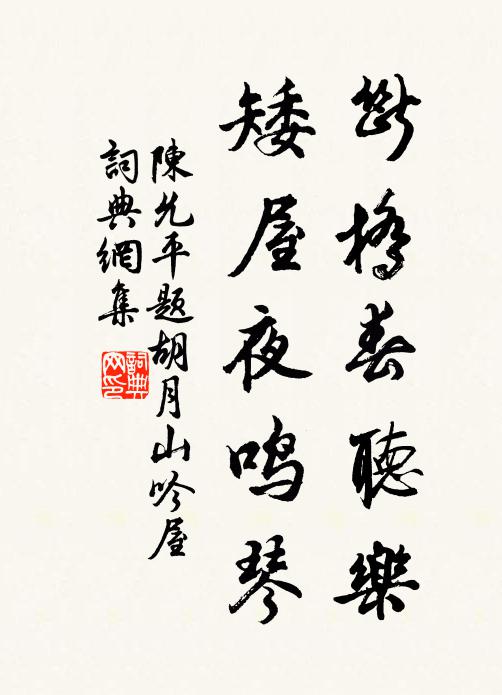 斷橋春聽樂
矮屋夜鳴琴
陳允平題胡月山吟屋
詞典網集
詞典網印